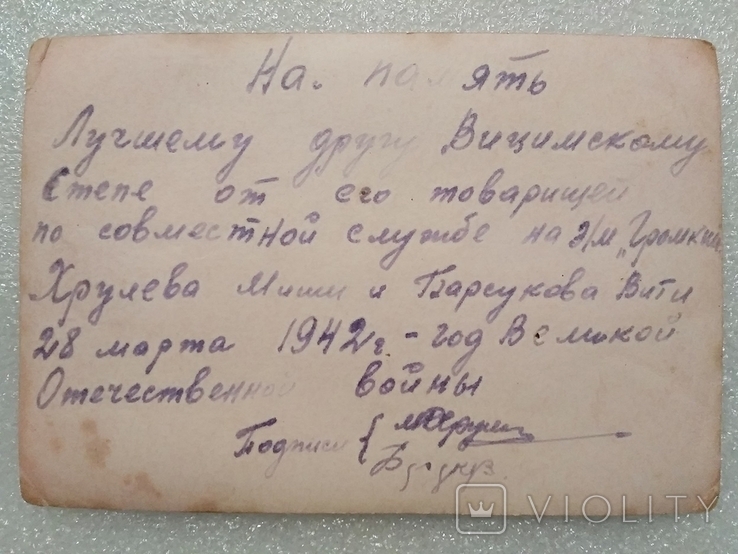 На память
Лучшему другу Вицимскому
Степе от его товарищей
по совместной службе на э/м "Громкий
Хрулева Миши и Барсукова Вити
28 марта 1942 г. - год Великой
Отечественной войны
Подписи {
VIOLITY